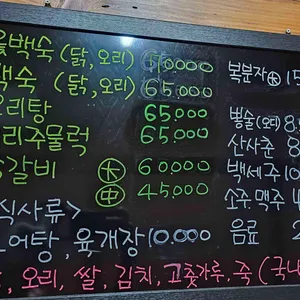 백숙 (닭, 오리)
백숙 (닭, 오리) 65.000
오리탕 65.000
오리주물럭 65.000
갈비 大 60.000
中 45.000
식사류>
어탕, 육개장 10.000
오리, 쌀, 김치, 고춧가루, 죽 (국내
복분자 大 15
뱀술(오디) 8.
산사춘 8.
백세주 10
소주, 맥주 4
음료 2